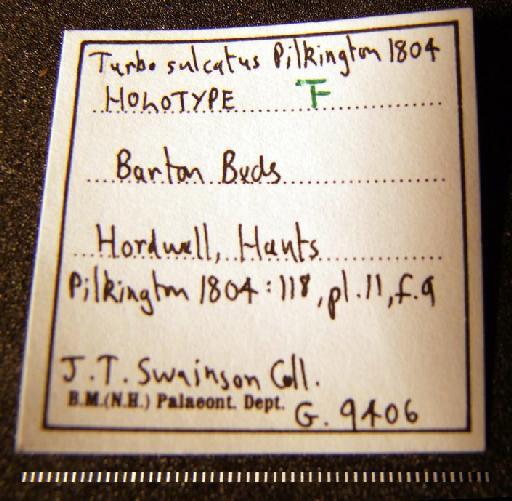 Turbo sulcatus Pilkington 1804
HOLOTYPE F
Barton Beds
Hordwell, Hants
Pilkington 1804:118, pl.11, f.9
J.T. Swainson Coll.
B.M.(N.H.) Palaeont. Dept. G. 9406